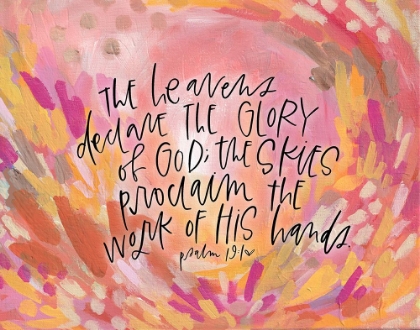 THE heavens
declare THE GLORY
of GOD; the SKIES
proclaim THE
WORK OF HIS hands.
psalm 19:1♡